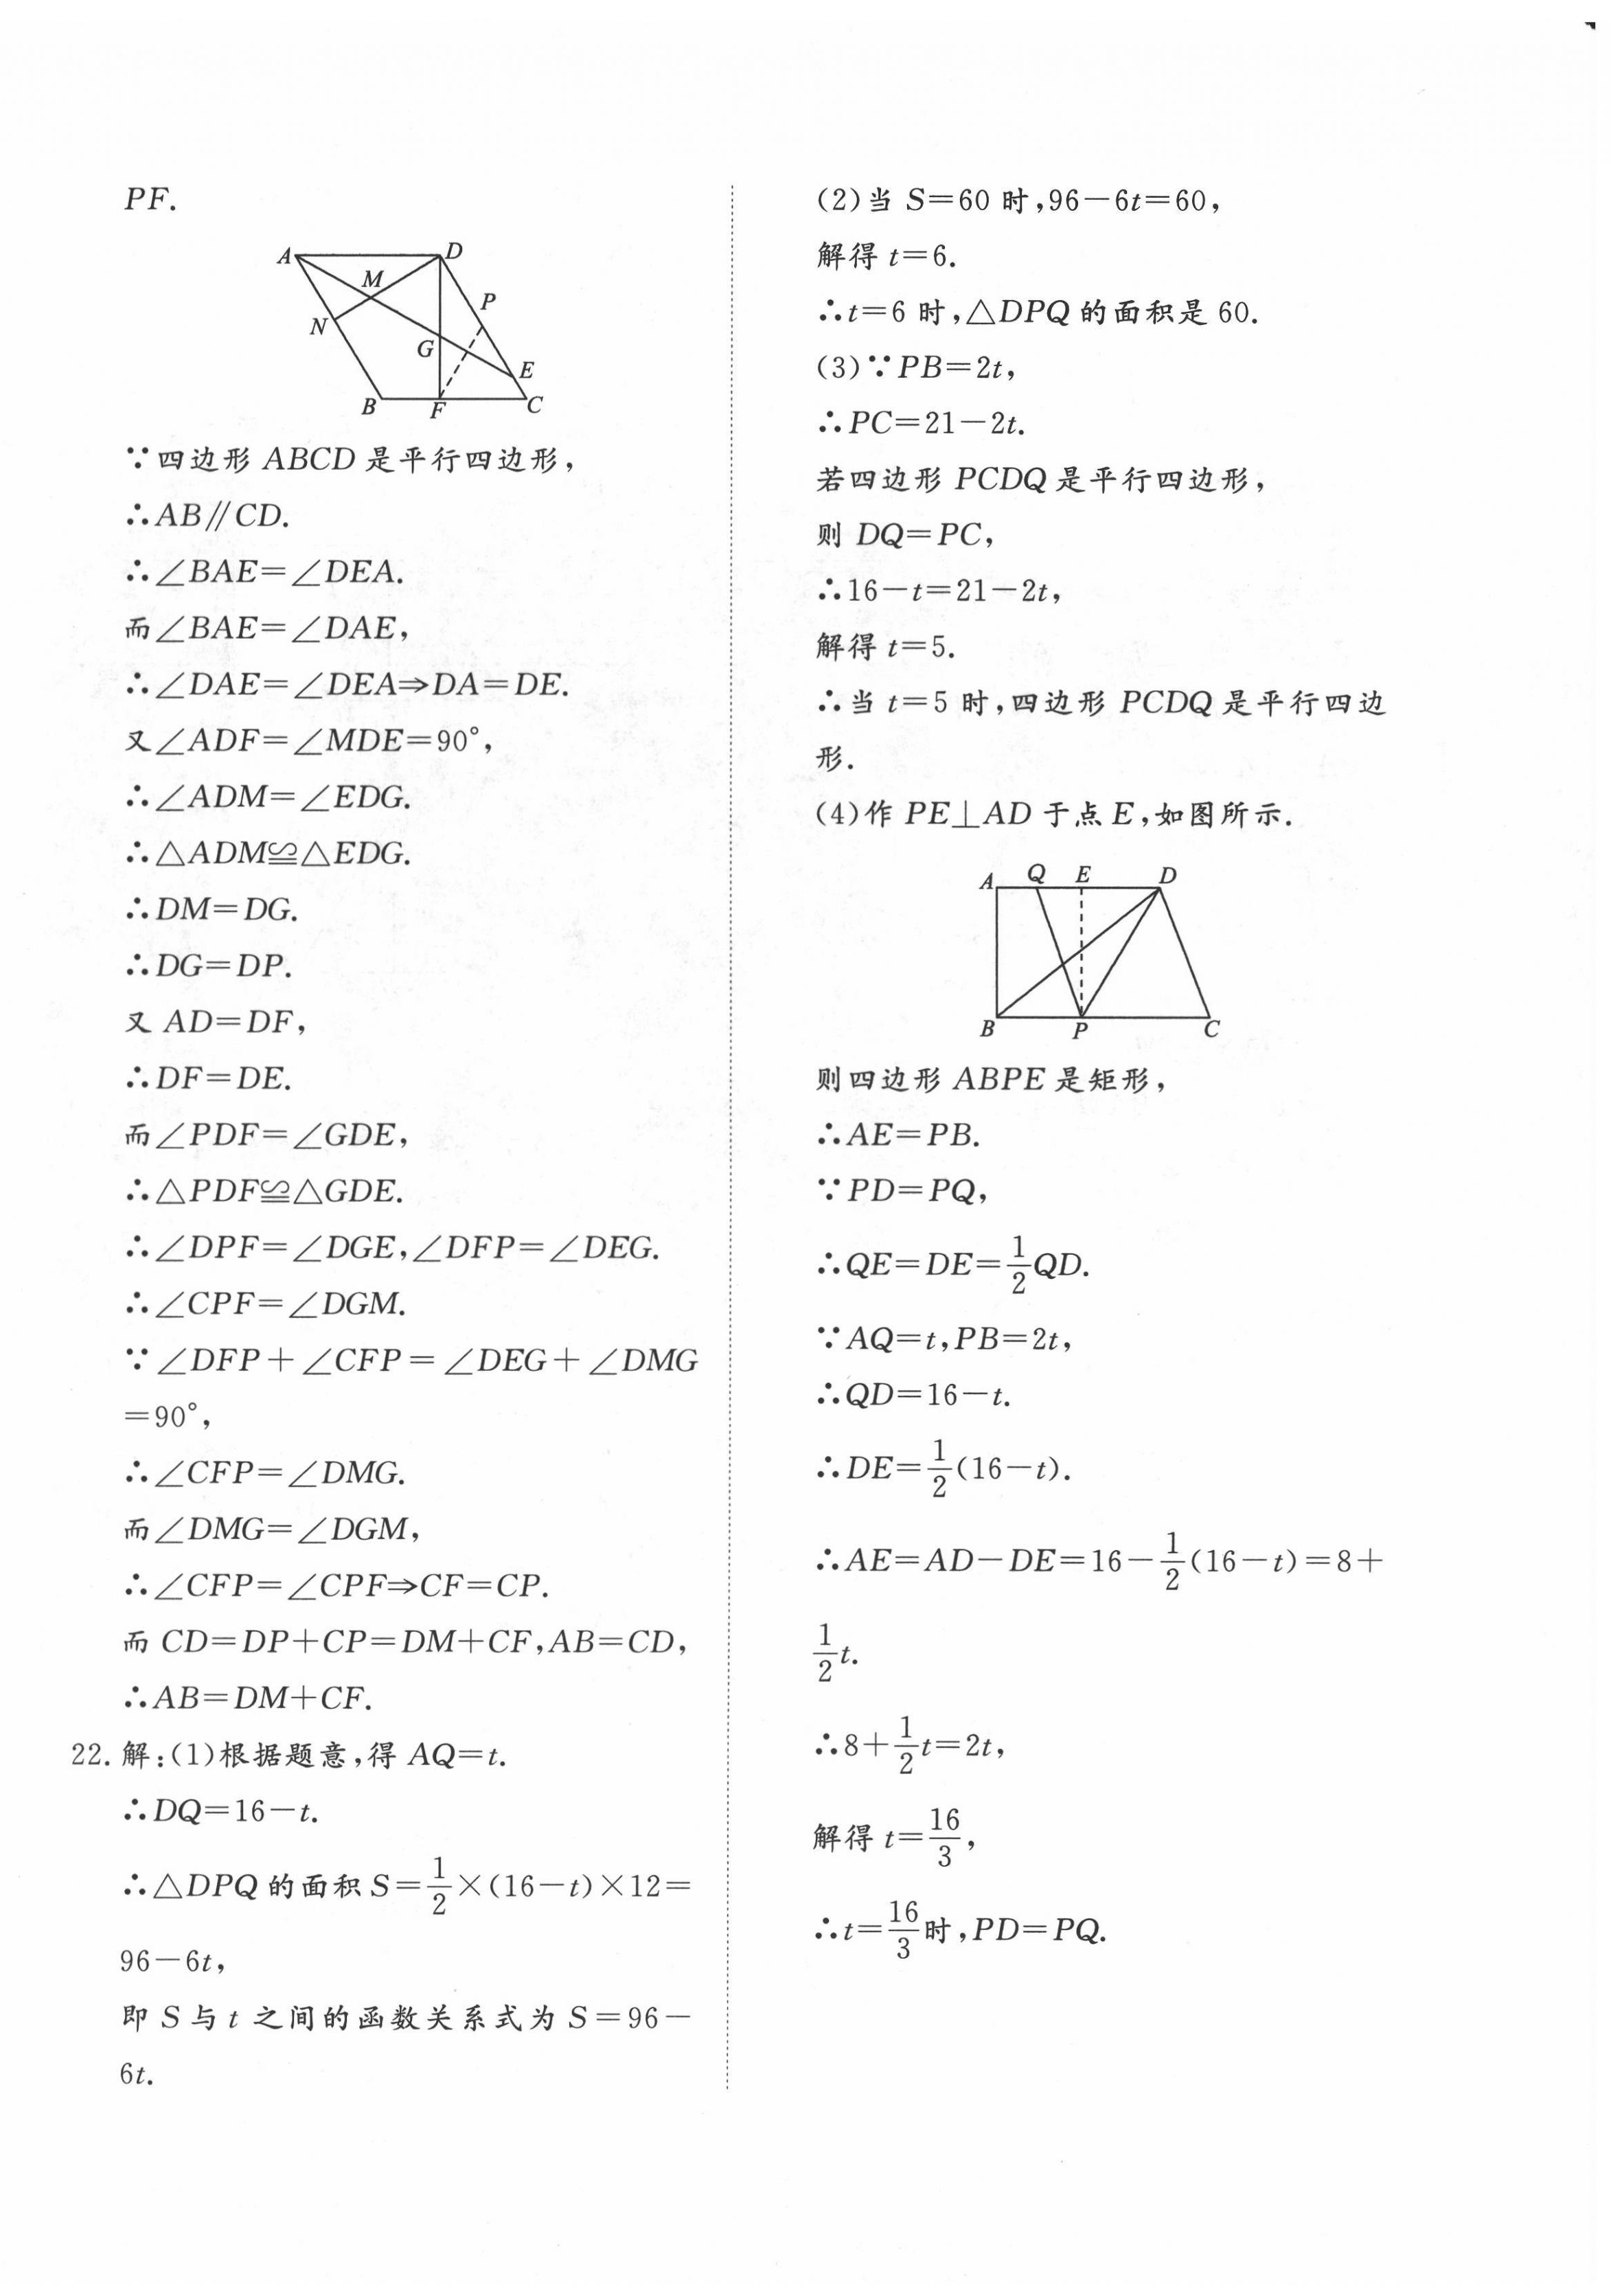 PF.
A D M P N G E B F C
∵四边形 ABCD 是平行四边形,
∴AB∥CD.
∴∠BAE=∠DEA.
而∠BAE=∠DAE,
∴∠DAE=∠DEA⇒DA=DE.
又∠ADF=∠MDE=90°,
∴∠ADM=∠EDG.
∴△ADM≌△EDG.
∴DM=DG.
∴DG=DP.
又 AD=DF,
∴DF=DE.
而∠PDF=∠GDE,
∴△PDF≌△GDE.
∴∠DPF=∠DGE,∠DFP=∠DEG.
∴∠CPF=∠DGM.
∵∠DFP+∠CFP=∠DEG+∠DMG
=90°,
∴∠CFP=∠DMG.
而∠DMG=∠DGM,
∴∠CFP=∠CPF⇒CF=CP.
而 CD=DP+CP=DM+CF,AB=CD,
∴AB=DM+CF.
22. 解:(1)根据题意,得 AQ=t.
∴DQ=16-t.
∴△DPQ 的面积 S=1/2×(16-t)×12=
96-6t,
即 S 与 t 之间的函数关系式为 S=96-
6t.
(2)当 S=60 时,96-6t=60,
解得 t=6.
∴t=6 时,△DPQ 的面积是 60.
(3)∵PB=2t,
∴PC=21-2t.
若四边形 PCDQ 是平行四边形,
则 DQ=PC,
∴16-t=21-2t,
解得 t=5.
∴当 t=5 时,四边形 PCDQ 是平行四边
形.
(4)作 PE⊥AD 于点 E,如图所示.
A Q E D
B P C
则四边形 ABPE 是矩形,
∴AE=PB.
∵PD=PQ,
∴QE=DE=1/2QD.
∵AQ=t,PB=2t,
∴QD=16-t.
∴DE=1/2(16-t).
∴AE=AD-DE=16-1/2(16-t)=8+
1/2t.
∴8+1/2t=2t,
解得 t=16/3,
∴t=16/3时,PD=PQ.